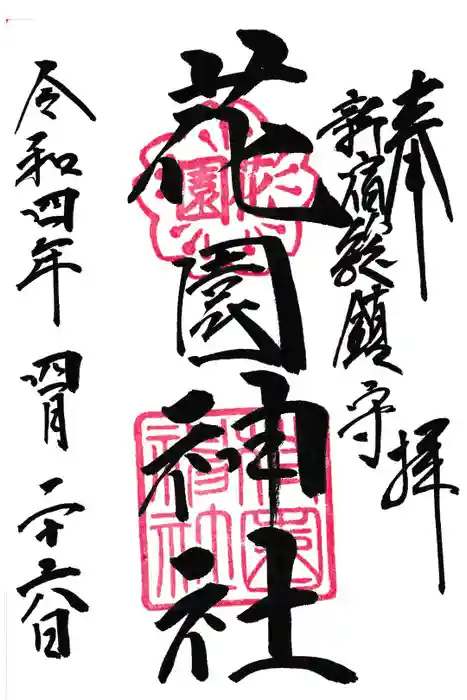 奉拝
新宿総鎮守
花園神社
令和四年 四月 二十六日
花園
花園神社